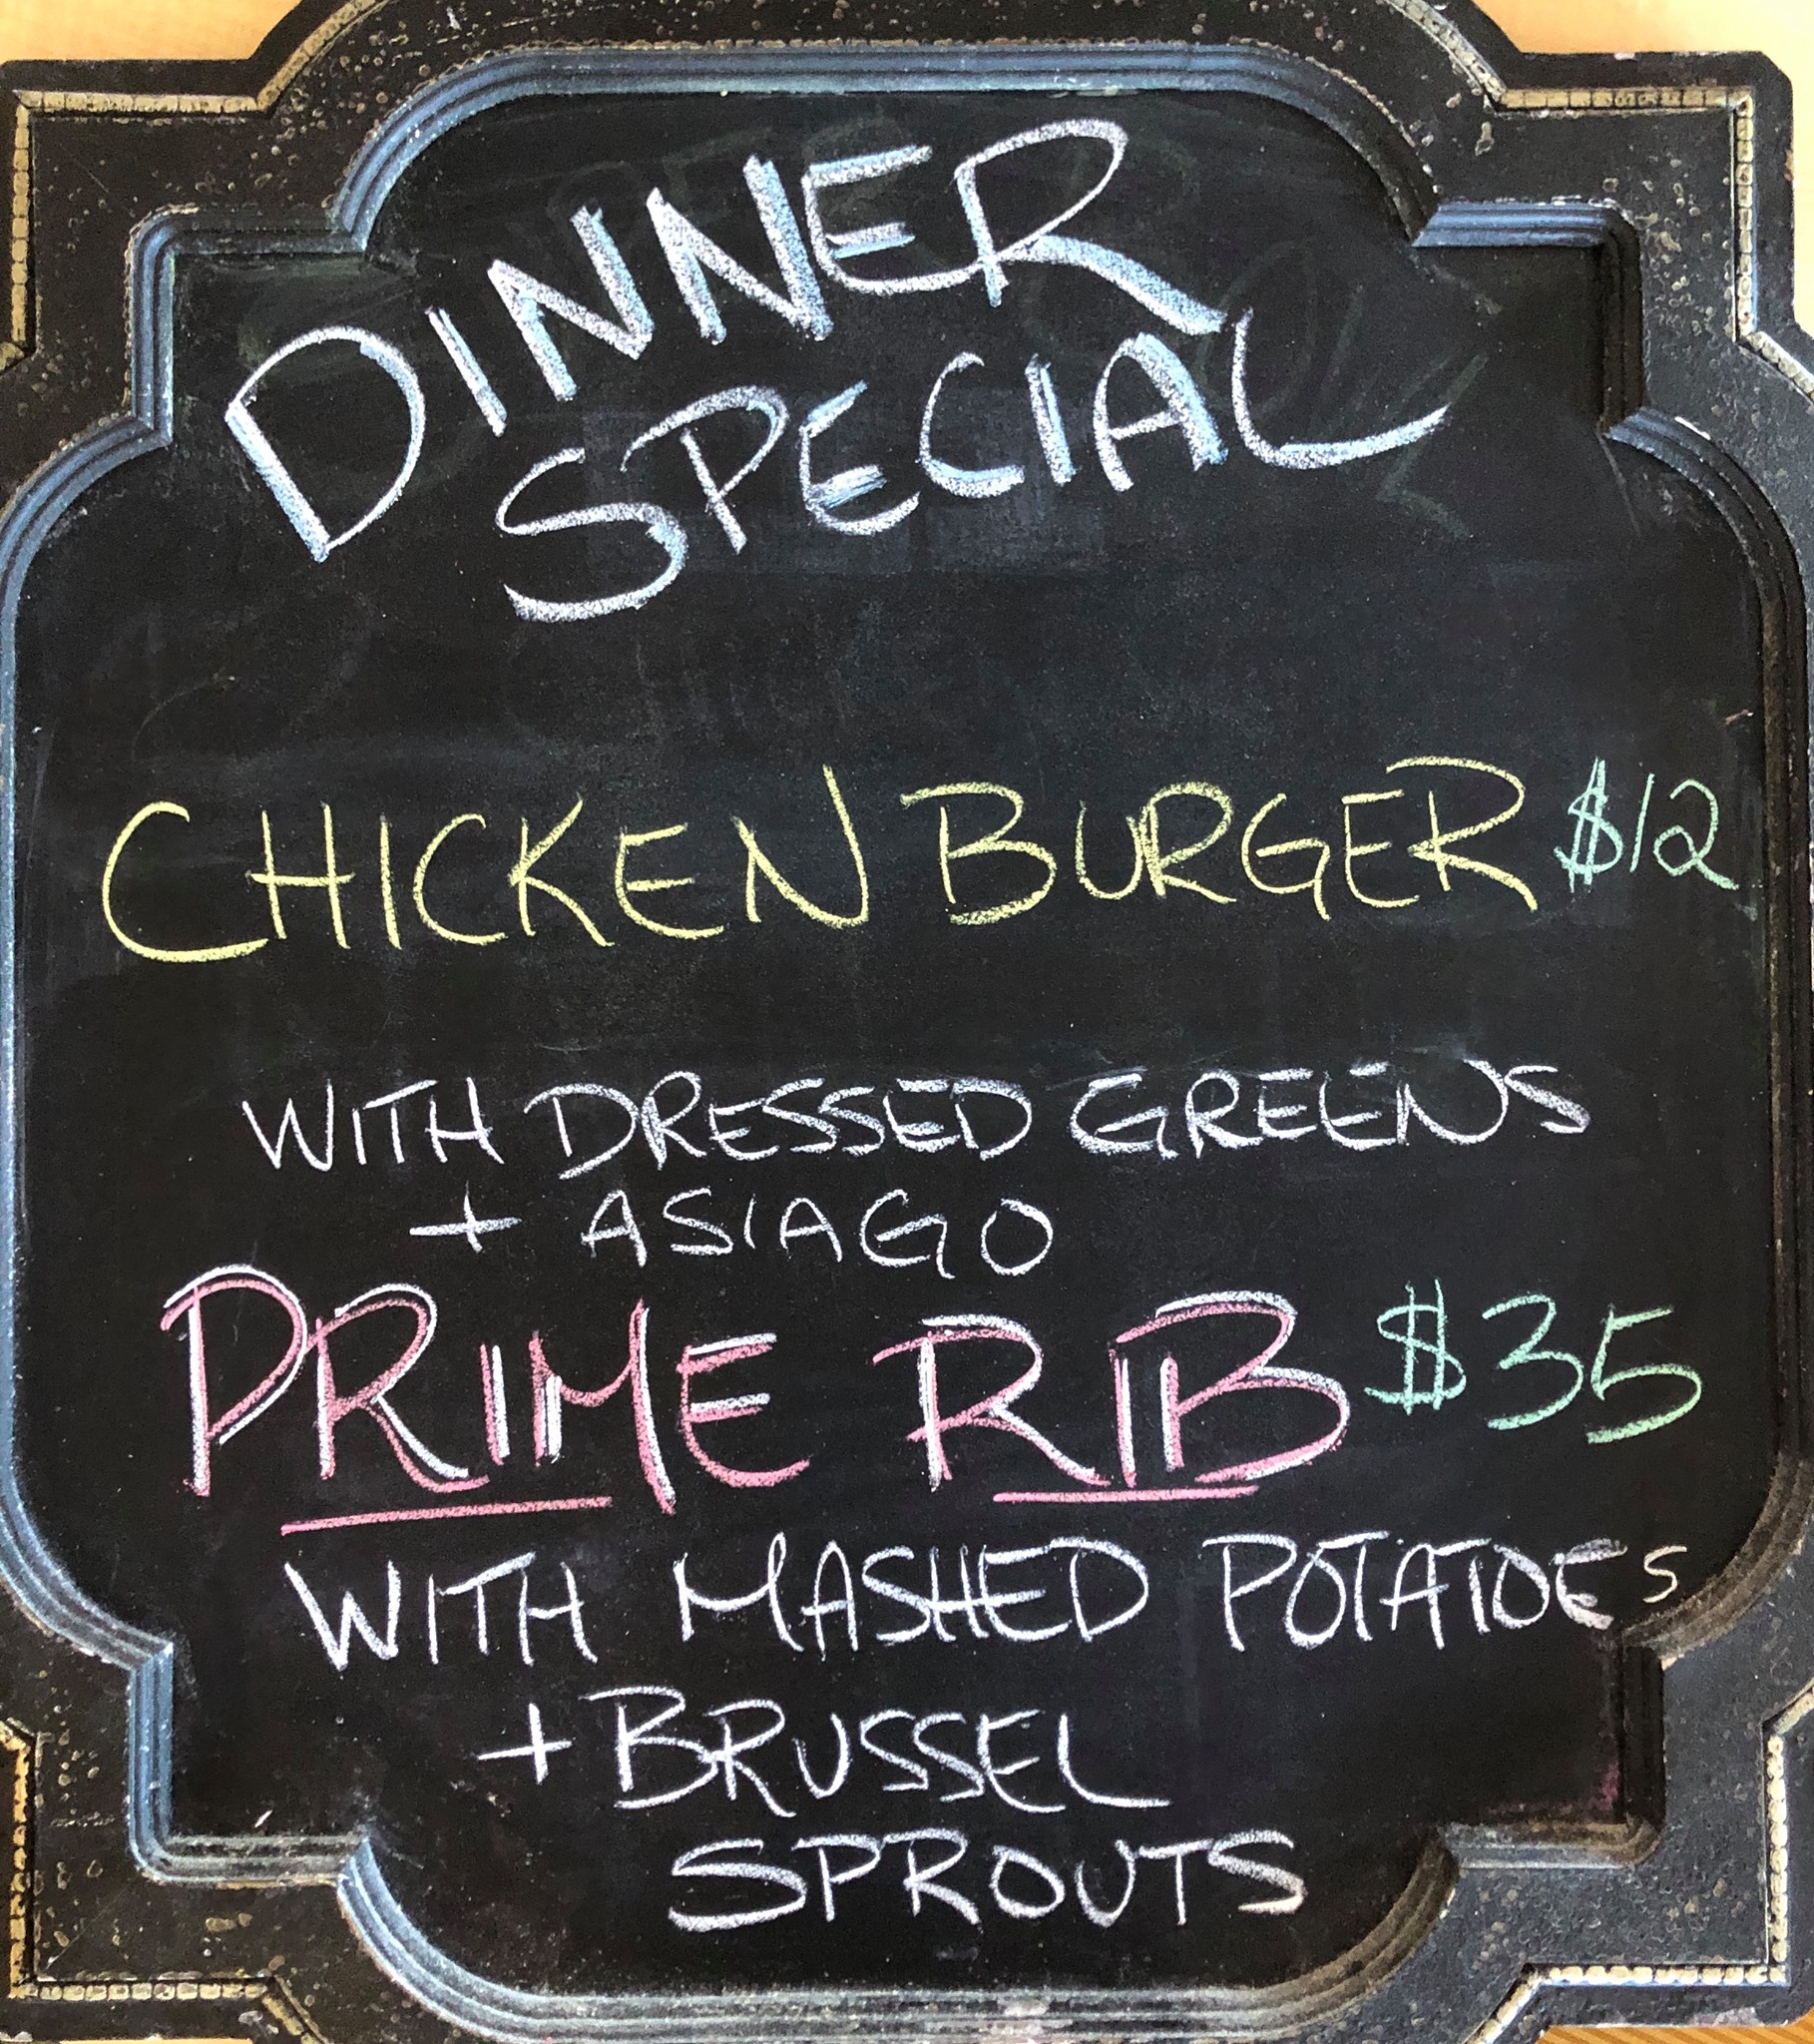 DINNER
SPECIAL
CHICKEN BURGER $12
WITH DRESSED GREENS
+ ASIAGO
PRIME RIB $35
WITH MASHED POTATOES
+ BRUSSEL
SPROUTS